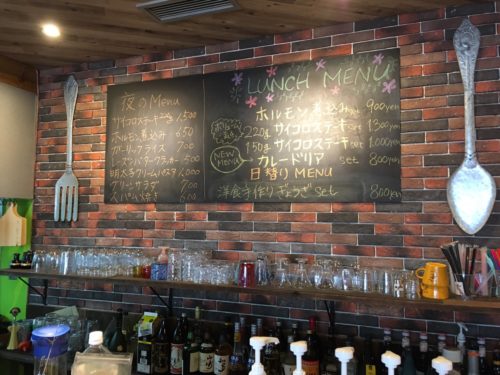 夜のMenu
サイコロステーキ 1,500
ホルモン煮込み 650
ガーリックライス 700
レーズンバタークラッカー 500
明太子クリームパスタ 1,000
グリーンサラダ 700
600
LUNCH MENU
ホルモン煮込みset 900yen
220g サイコロステーキset 1,300yen
150g サイコロステーキset 1,000yen
NEW MENU
カレードリア set 800yen
日替りMENU
洋食手作りぎょうざset 800yen